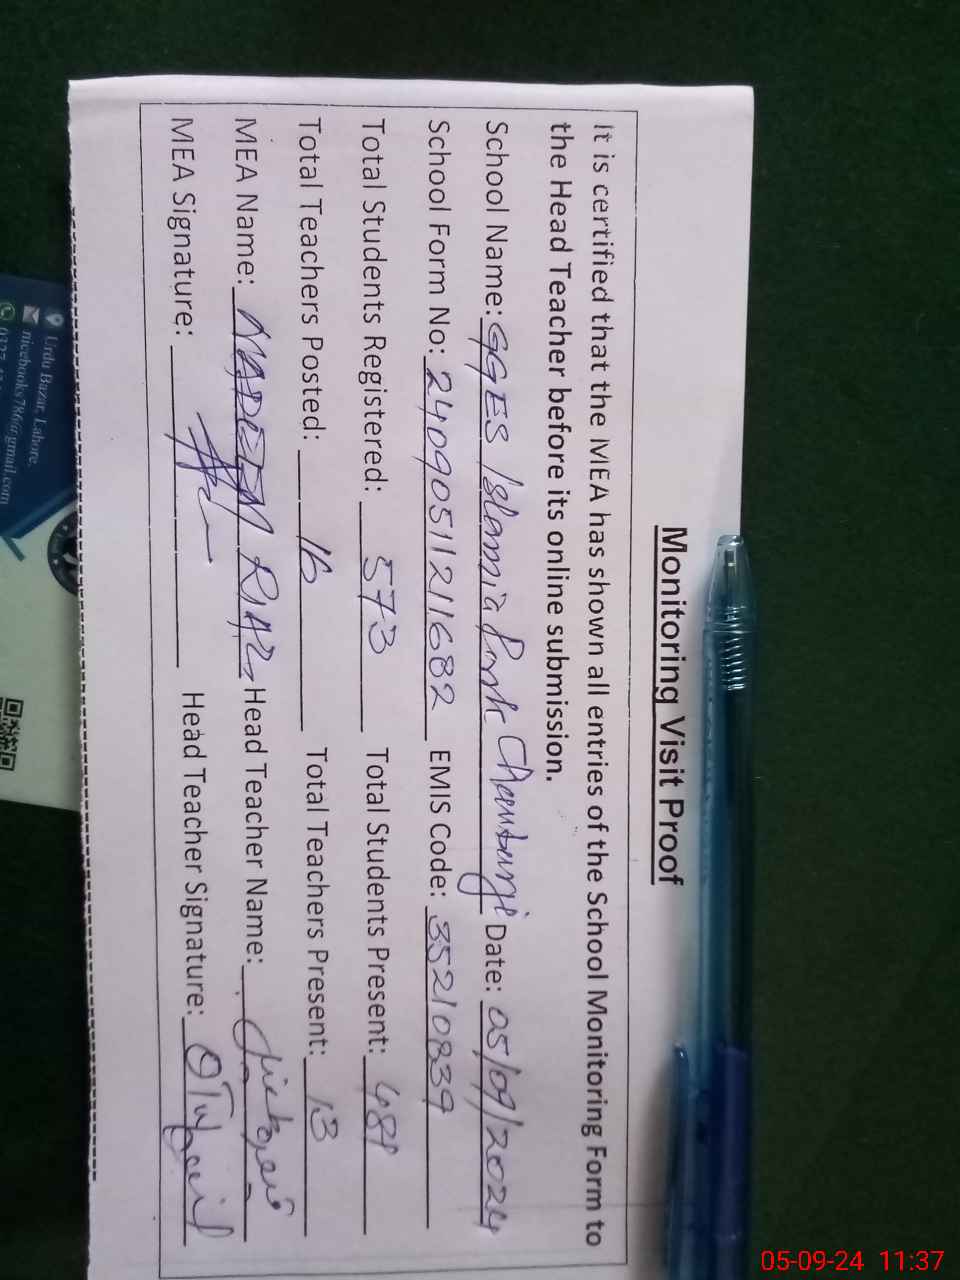 Monitoring Visit Proof
It is certified that the MEA has shown all entries of the School Monitoring Form to
the Head Teacher before its online submission.
School Name: GGES Islamia Park Chauburji Date: 05/09/2024
School Form No: 24090511211682 EMIS Code: 35210839
Total Students Registered: 573 Total Students Present:
Total Teachers Posted: 16 Total Teachers Present: 13
MEA Name: NADEEM RIAZ Head Teacher Name:
MEA Signature: Head Teacher Signature:
Urdu Bazar, Lahore.
nicebooks786@gmail.com
05-09-24 11:37